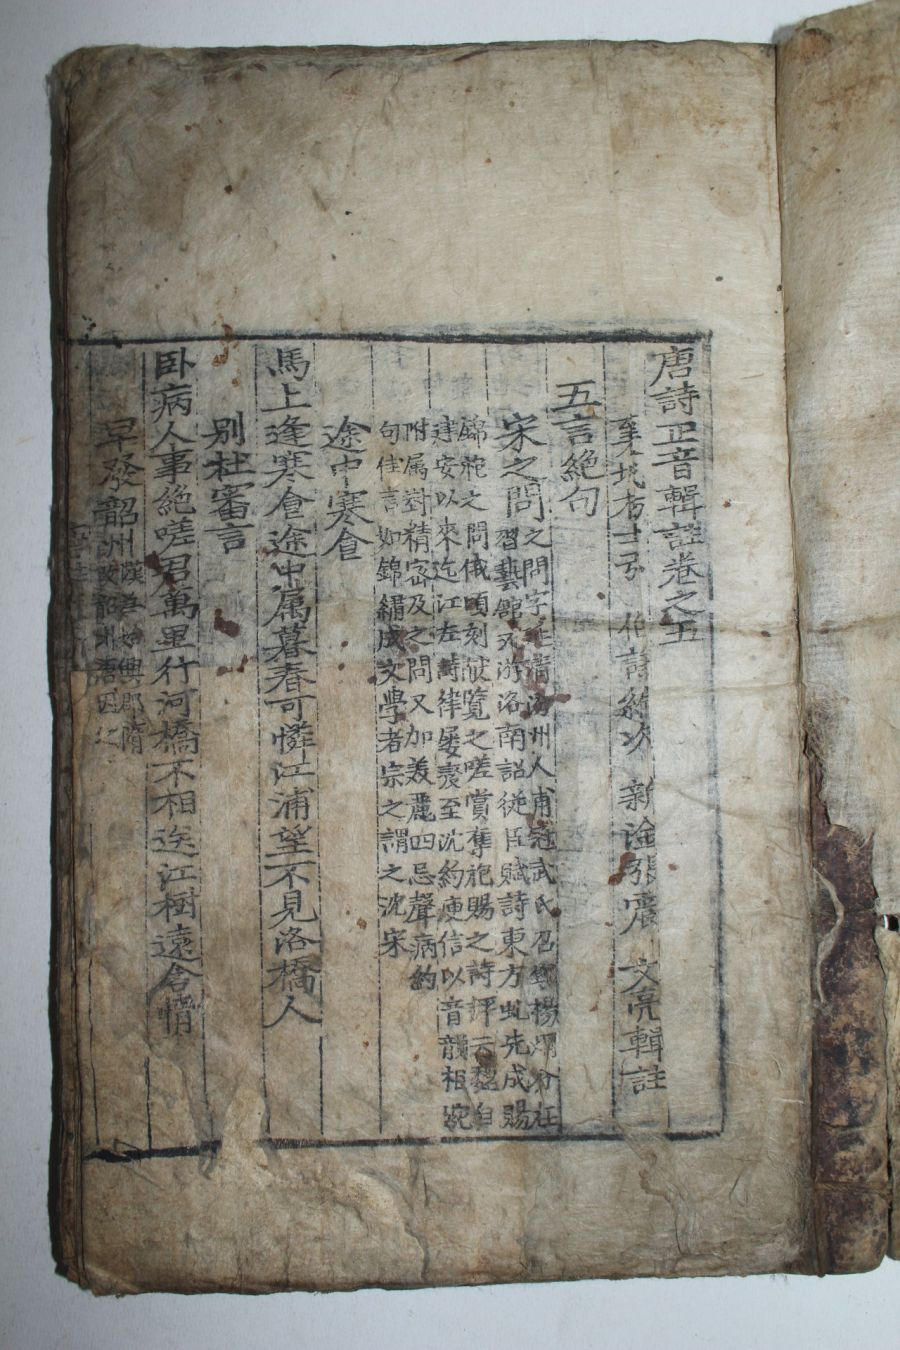 唐詩正音輯註卷之五
襄城楊士弘 伯謙編次 新淦張震 文亮輯註
五言絶句
宋之問
之問字 清汾州人甫冠武氏召與楊烱分在
習藝館 游洛南詔從臣賦詩東方虬先成賜
錦袍之問俄頃刻献覧之嗟賞奪袍賜之詩評云魏自
建安以來迄江左詩律屡変至沈約庾信以音韻相婉
附属對精宻及之問又加美麗回忌聲病約
句佳言如錦繡成文學者宗之謂之沈宋
途中寒食
馬上逢寒食途中属暮春可憐江浦望不見洛橋人
别杜審言
卧病人事絶嗟君萬里行河橋不相送江樹遠含情
早發韶州
漢 始興郡隋